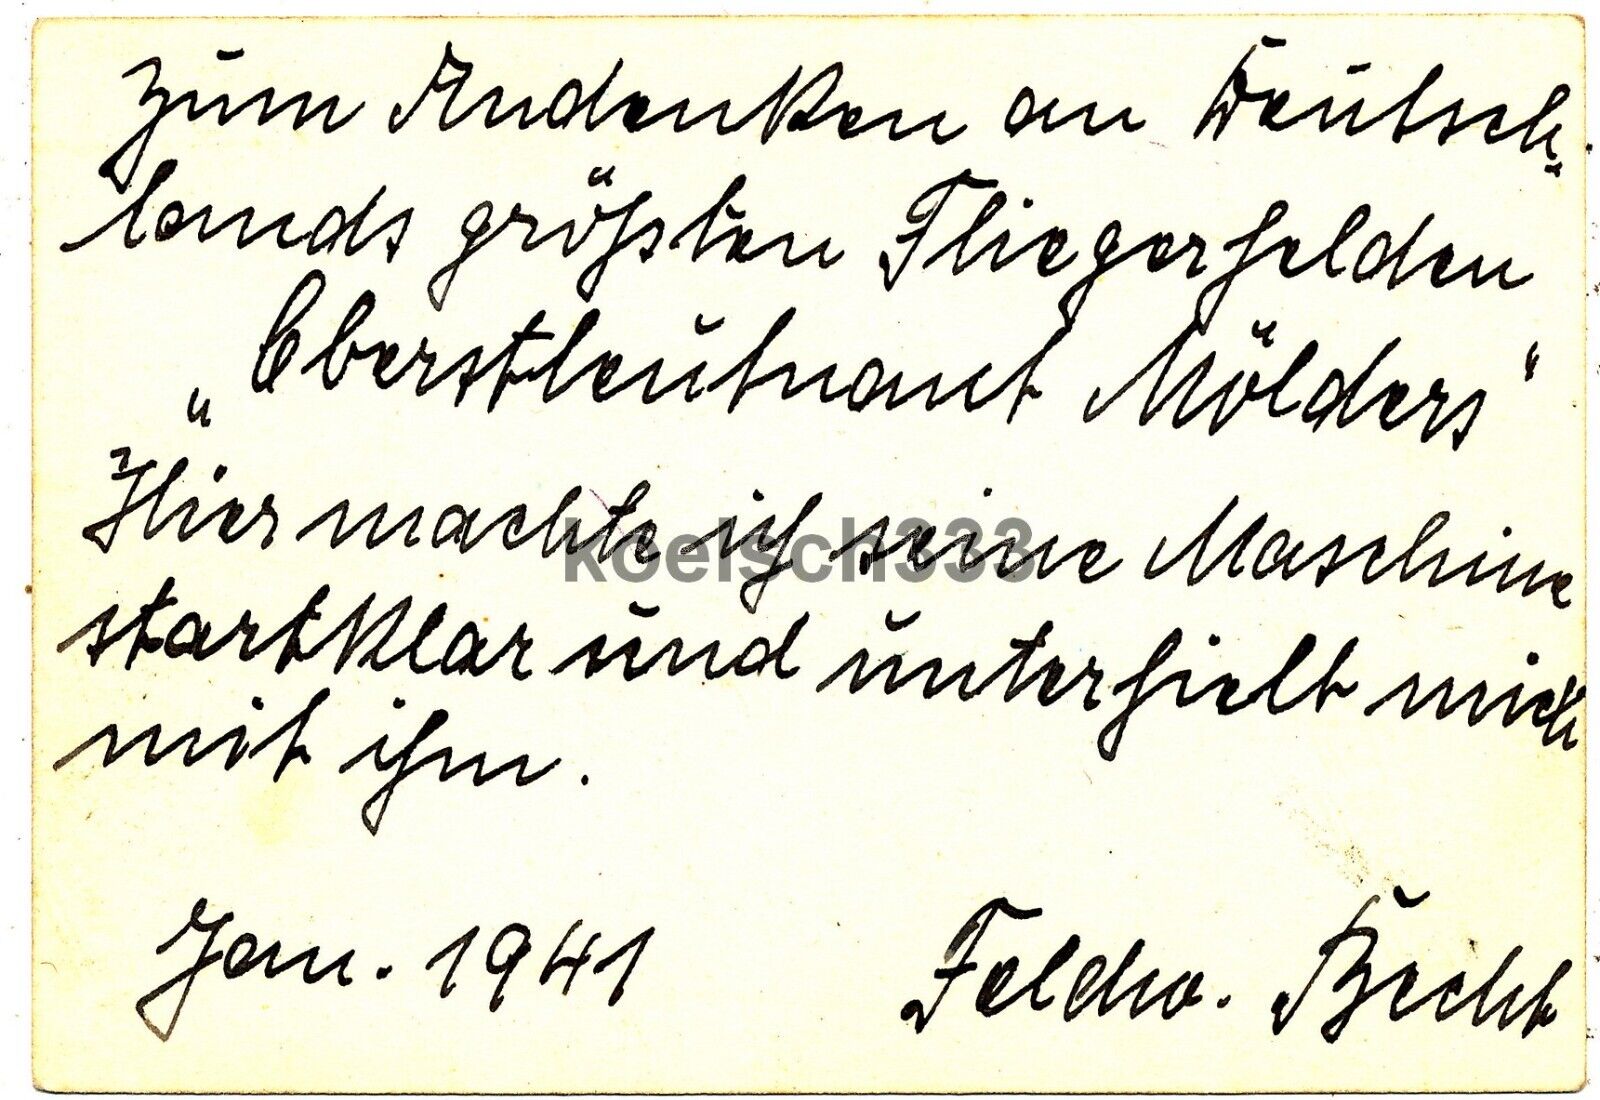 Zum Andenken an Deutsch-
lands größten Fliegerhelden
„Oberstleutnant Mölders“
Hier machte ich seine Maschine
startklar und unterhielt mich
mit ihm.
koelsch333
Jan. 1941 Feldw. Becht